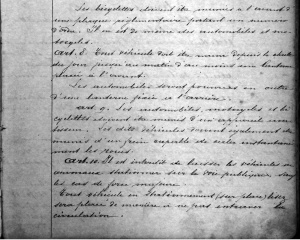 Les bicyclettes doivent être munies à l'avant d'
une plaque réglementaire portant un numéro
d'ordre. Il en est de même des automobiles et mo-
tocycles.
Art. 8. Tout véhicule doit être muni depuis la chute
du jour jusqu'au matin d'au moins une lanterne
placée à l'avant.
Les automobiles seront pourvues en outre
d'une lanterne fixée à l'arrière.
Art. 9. Les automobiles motocycles et bi-
cyclettes doivent être munis d'un appareil aver-
tisseur. Les dits véhicules doivent également être
munis d'un frein capable de caler instantané-
ment les roues.
Art. 10. Il est interdit de laisser les véhicules ou
animaux stationner sur la voie publique, dans
les cas de force majeure.
Tout véhicule en stationnement sur place
sera placé de manière à ne pas entraver la
circulation.